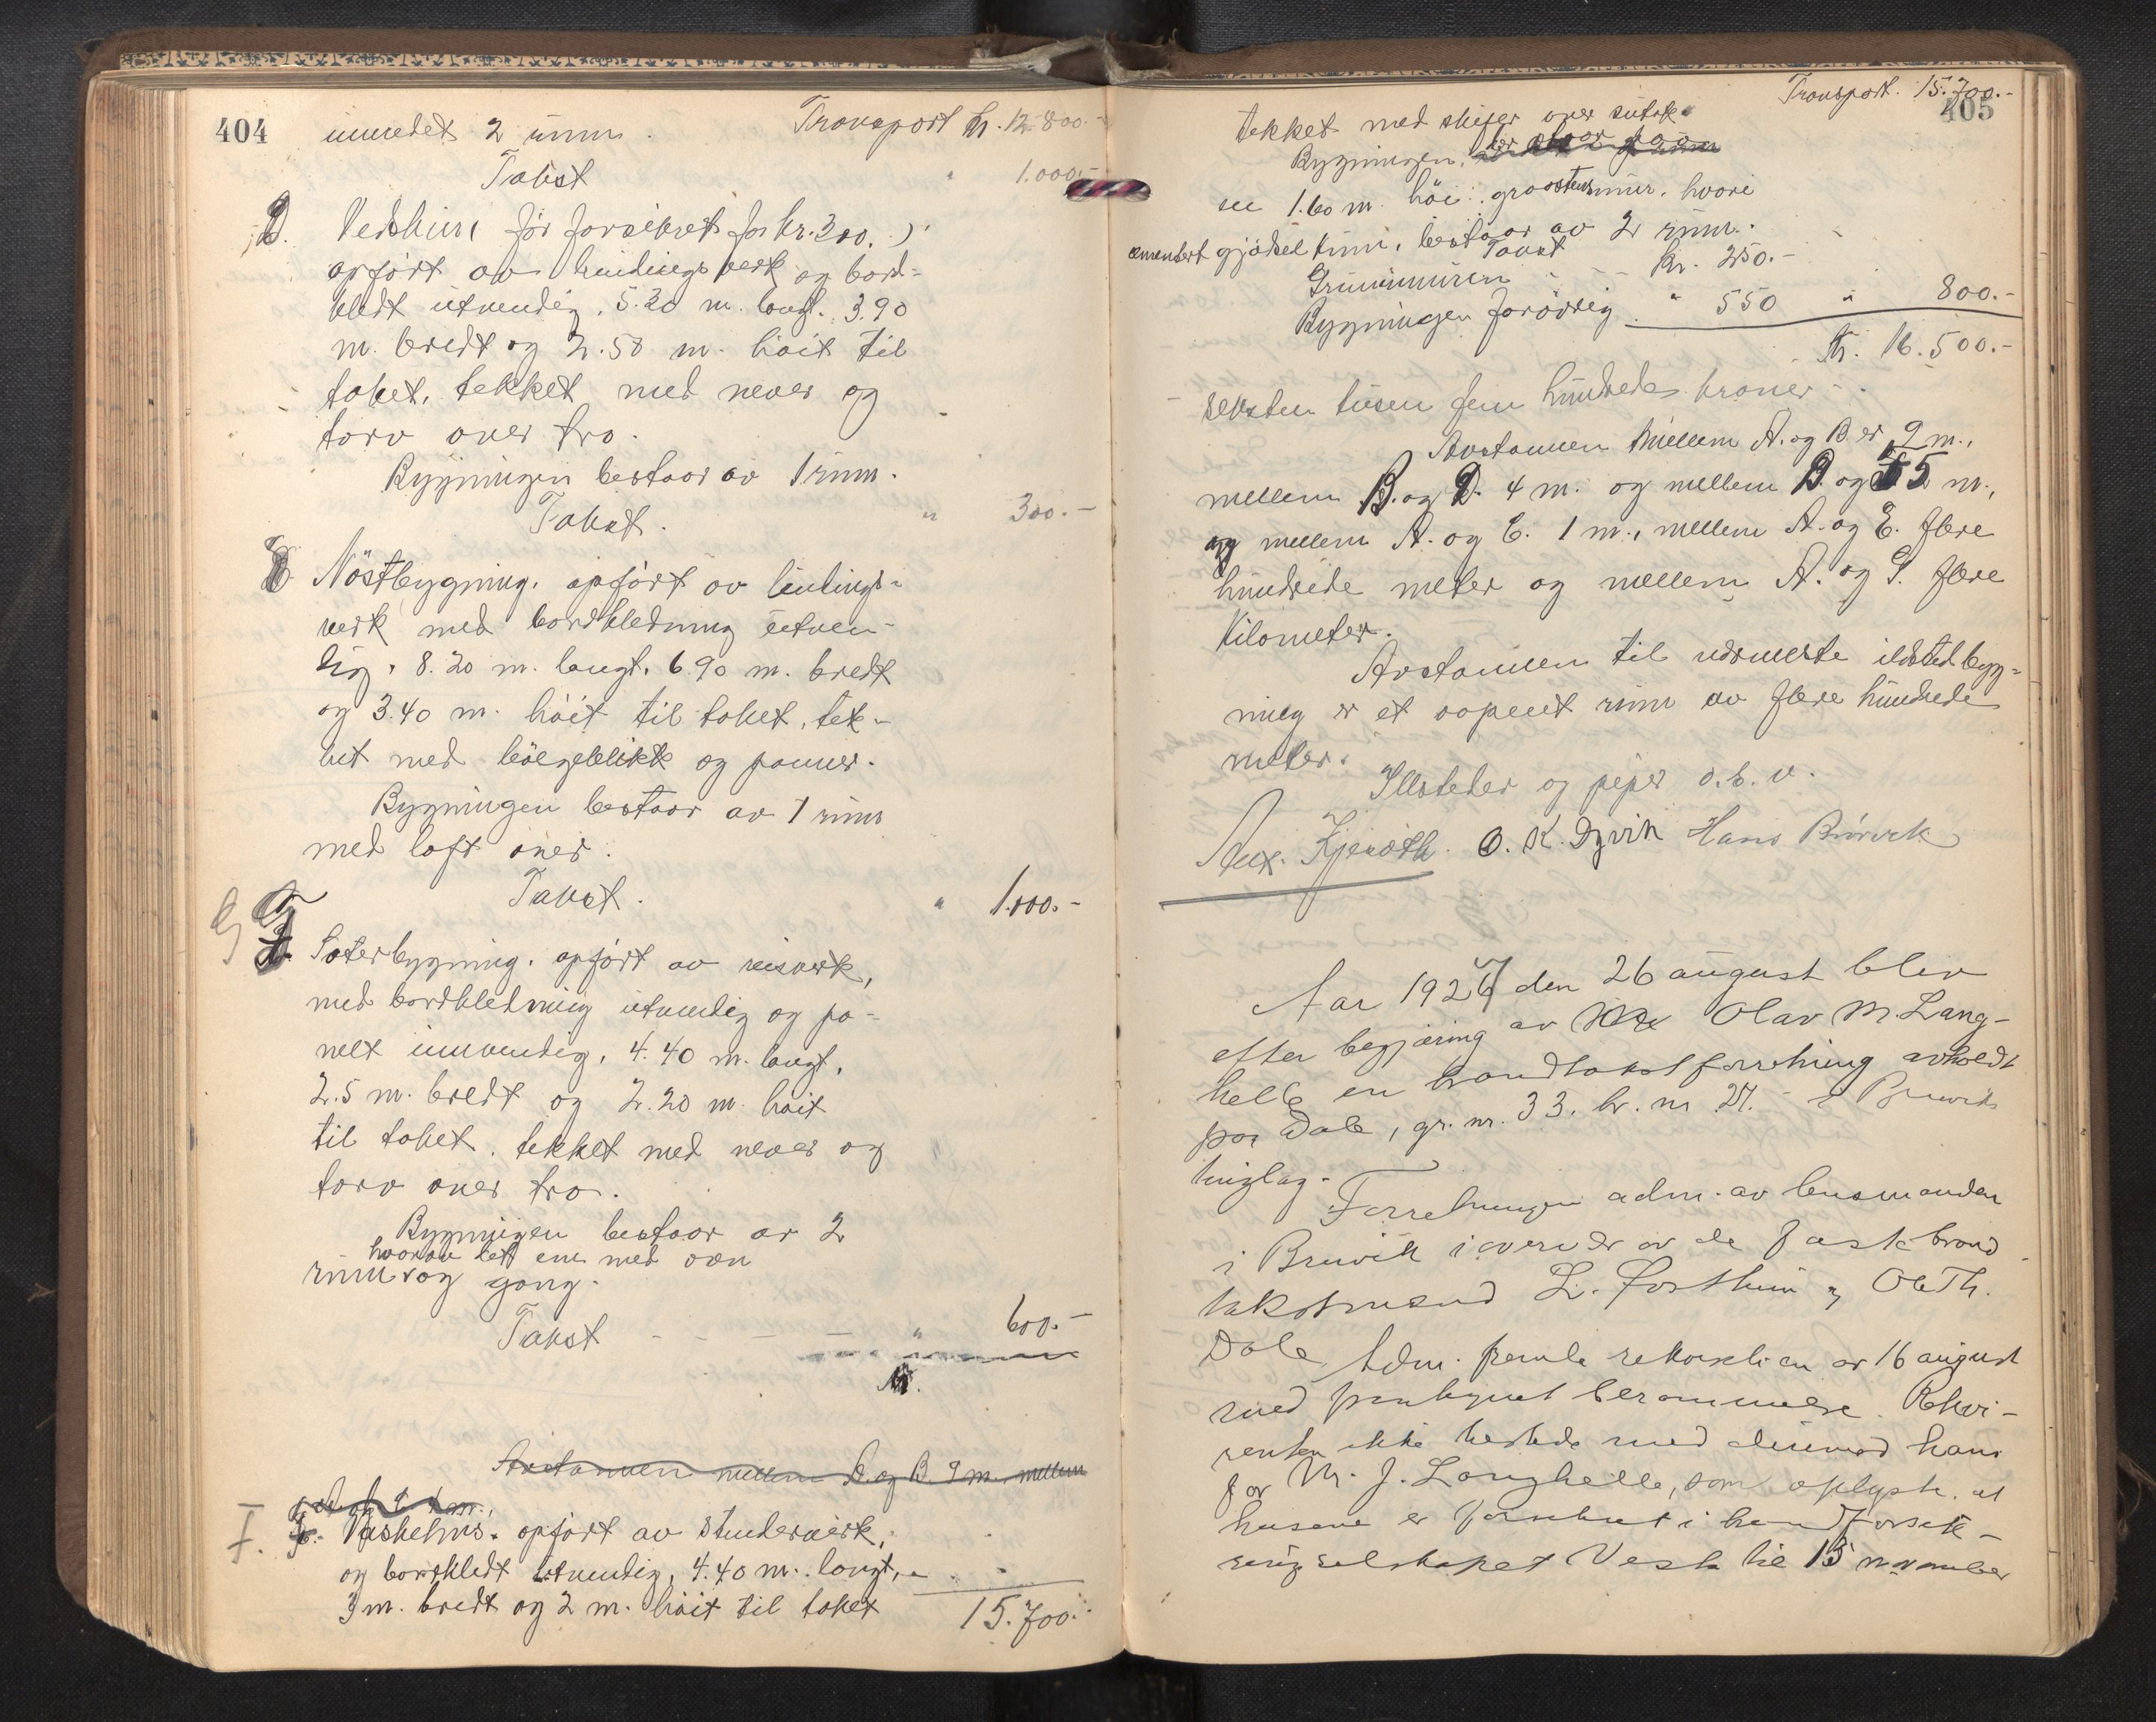 404
innredet 2 rum. Transport kr. 12.800.-
Takst " 1.000.-
D. Vedskur (før forsikret for kr. 300.)
opført av bindingsverk og bord-
kledt utvendig, 5.20 m. langt. 3.90
m. bredt og 2.50 m. høit til
taket, tekket med never og
torv over tro.
Bygningen bestaar av 1 rum.
Takst. " 300.-
E Nöstbygning, opført av bindings-
verk med bordkledning utven-
dig, 8.20 m. langt, 6.90 m. bredt
og 3.40 m. høit til taket, tek-
ket med bölgeblikk og panner.
Bygningen bestaar av 1 rum
med loft over.
Takst. " 1.000.-
G Sæterbygning, opført av reisverk,
med bordkledning utvendig og pa-
nelt innvendig, 4.40 m. langt,
2.5 m. bredt og 2.20 m. høit
til taket, tekket med never og
torv over tro.
Bygningen bestaar av 2
hvorav det ene med ovn
rum og gang.
Takst - - - - " 600.-
Kr.
Avstannen mellem A. og B 9 m., mellem
F. Vaskehus. opført av stenderverk,
og bordkledt utvendig, 4.40 m. langt,
3 m. bredt og 2 m. høit til taket 15.700.-
Transport. 15.700.-
405
tekket med skifer over sutak.
Bygningen,
se 1.60 m. höi graastensmur, hvori
cementert gjödselkum, bestaar av 2 rum.
Takst
Grunnmuren - - - kr. 250.-
Bygningen forøvrig. " 550 " 800.-
Kr. 16.500.-
seksten tusen fem hundrede kroner
Avstannen mellem A. og B er 9 m.,
mellem B. og D. 4 m. og mellem D. og F 5 m.,
og mellem A. og C. 1 m., mellem A. og E. flere
hundrede meter og mellem A. og G. flere
kilometer.
Avstannen til nærmeste ildstedbygg-
ning er et aapent rum av flere hundrede
meter.
Illsteder og piper o.b.v.
Alex. Kjeroth. O. K. Dyvik Hans Burvik
Aar 1927 den 26 august blev
efter begjæring av Olav M. Lang-
helle en brandtakstforretning avholdt
paa Dale, gr. nr. 33. br. nr 27. i Bruvik
tinglag.
Forretningen adm. av lensmanden
i Bruvik i overvær av de faste brand
takstmænd L. Forsthun og Ole Th.
Dale. Adm. fremla rekvisition av 16 august
med paategnet berammelse. Rekvi-
renten ikke tilstede med derimod hans
far M. J. Langhelle, som oplyste at
husene er forsikret i brandforsik-
ringselskapet Vesta til 15 november